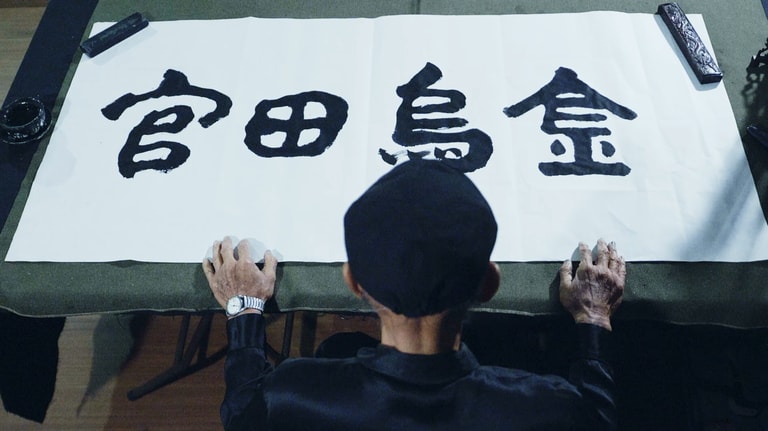 金烏田宮